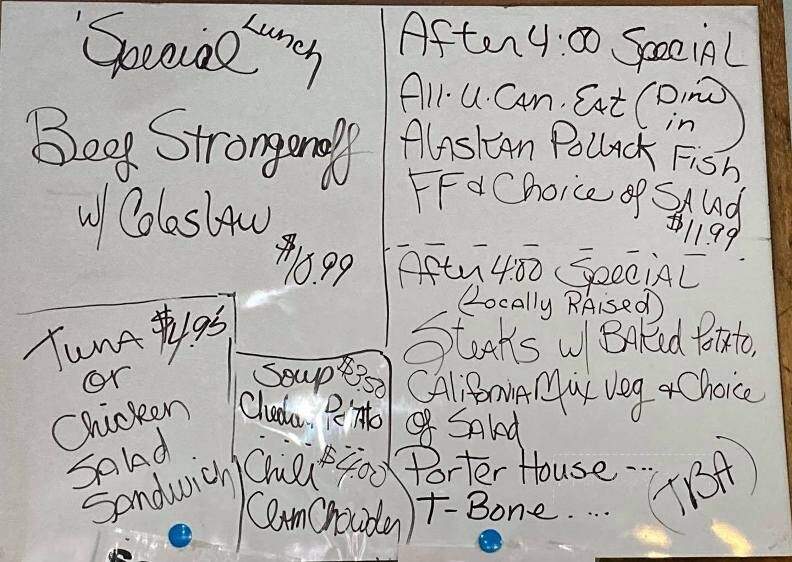 Special Lunch
Beef Strongenoff
w/ Coleslaw
$10.99
Tuna $4.95
or
Chicken
Salad
Sandwich
Soup $3.50
Chedar Potato
Chili $4.00
Clam Chowder
After 4:00 Special
All.U.Can.Eat (Dine in)
Alaskan Pollack Fish
FF & Choice of Salad
$11.99
After 4:00 Special
(Locally Raised)
Steaks w/ Baked Potato,
California Mix Veg & Choice
of Salad
Porter House --- (TBA)
T-Bone ....